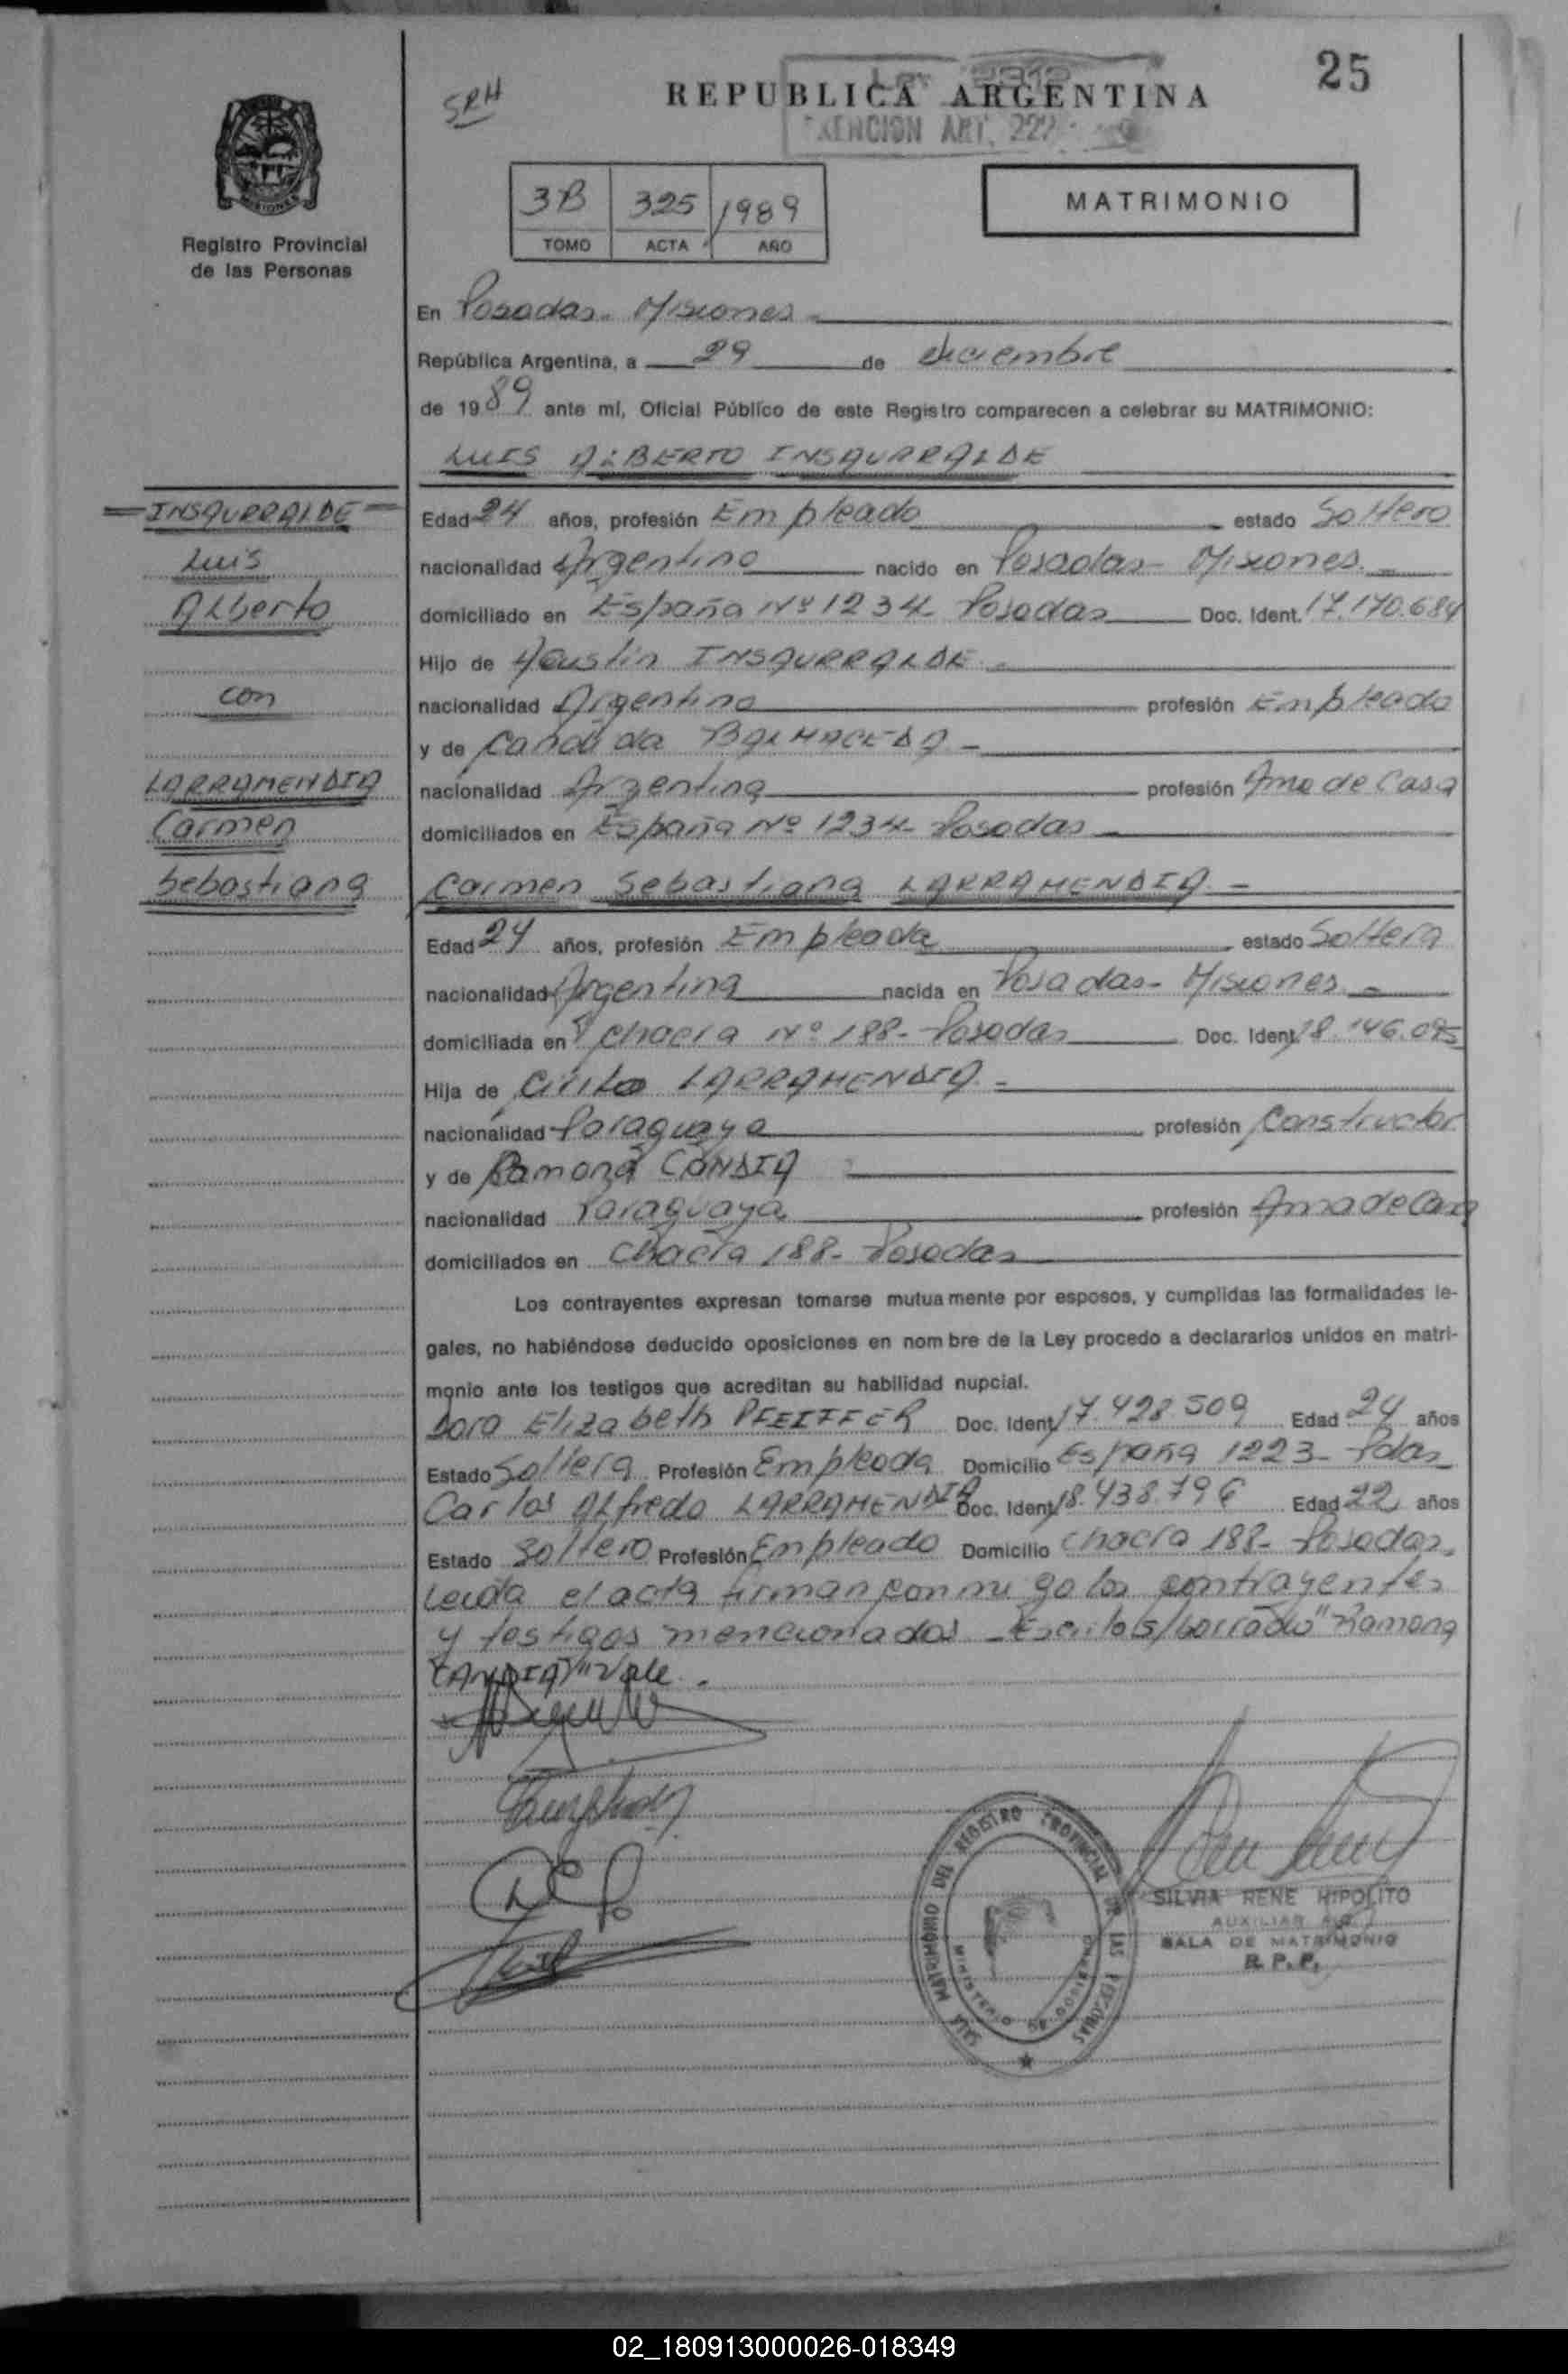 25
SRH
REPUBLICA ARGENTINA
EXENCION ART. 227
MISIONES
Registro Provincial
de las Personas
3B 325 1989
TOMO ACTA AÑO
MATRIMONIO
En Posadas - Misiones -
República Argentina, a 29 de diciembre
de 1989 ante mí, Oficial Público de este Registro comparecen a celebrar su MATRIMONIO:
LUIS ALBERTO INSAURRALDE
INSAURRALDE
Luis
Alberto
con
LARRAMENDIA
Carmen
Sebastiana
Edad 24 años, profesión Empleado estado Soltero
nacionalidad Argentino nacido en Posadas - Misiones -
domiciliado en España Nº 1234 Posadas Doc. Ident. 17.170.684
Hijo de Agustin INSAURRALDE -
nacionalidad Argentina profesión Empleado
y de Candida BALMACEDA -
nacionalidad Argentina profesión Ama de Casa
domiciliados en España Nº 1234 - Posadas
Carmen Sebastiana LARRAMENDIA -
Edad 24 años, profesión Empleada estado Soltera
nacionalidad Argentina nacida en Posadas - Misiones -
domiciliada en Chacra Nº 188 - Posadas Doc. Ident. 18.146.095
Hija de LARRAMENDIA -
nacionalidad Paraguaya profesión Constructor
y de Ramona CANDIA
nacionalidad Paraguaya profesión Ama de Casa
domiciliados en Chacra 188 - Posadas
Los contrayentes expresan tomarse mutuamente por esposos, y cumplidas las formalidades le-
gales, no habiéndose deducido oposiciones en nombre de la Ley procedo a declararlos unidos en matri-
monio ante los testigos que acreditan su habilidad nupcial.
Dora Elizabeth PFEIFFER Doc. Ident. 17.428.509 Edad 24 años
Estado Soltera Profesión Empleada Domicilio España 1223 - Pdas
Carlos Alfredo LARRAMENDIA Doc. Ident. 18.438.796 Edad 22 años
Estado Soltero Profesión Empleado Domicilio Chacra 188 - Posadas.
Leida el acta firman conmigo los contrayentes
y testigos mencionados - Escrito s/borrado "Ramona
CANDIA" Vale.
SALA MATRIMONIO DEL REGISTRO PROVINCIAL DE LAS PERSONAS
MINISTERIO DE GOBIERNO
SILVIA RENE HIPOLITO
AUXILIAR
SALA DE MATRIMONIO
R. P. P.
02_180913000026-018349